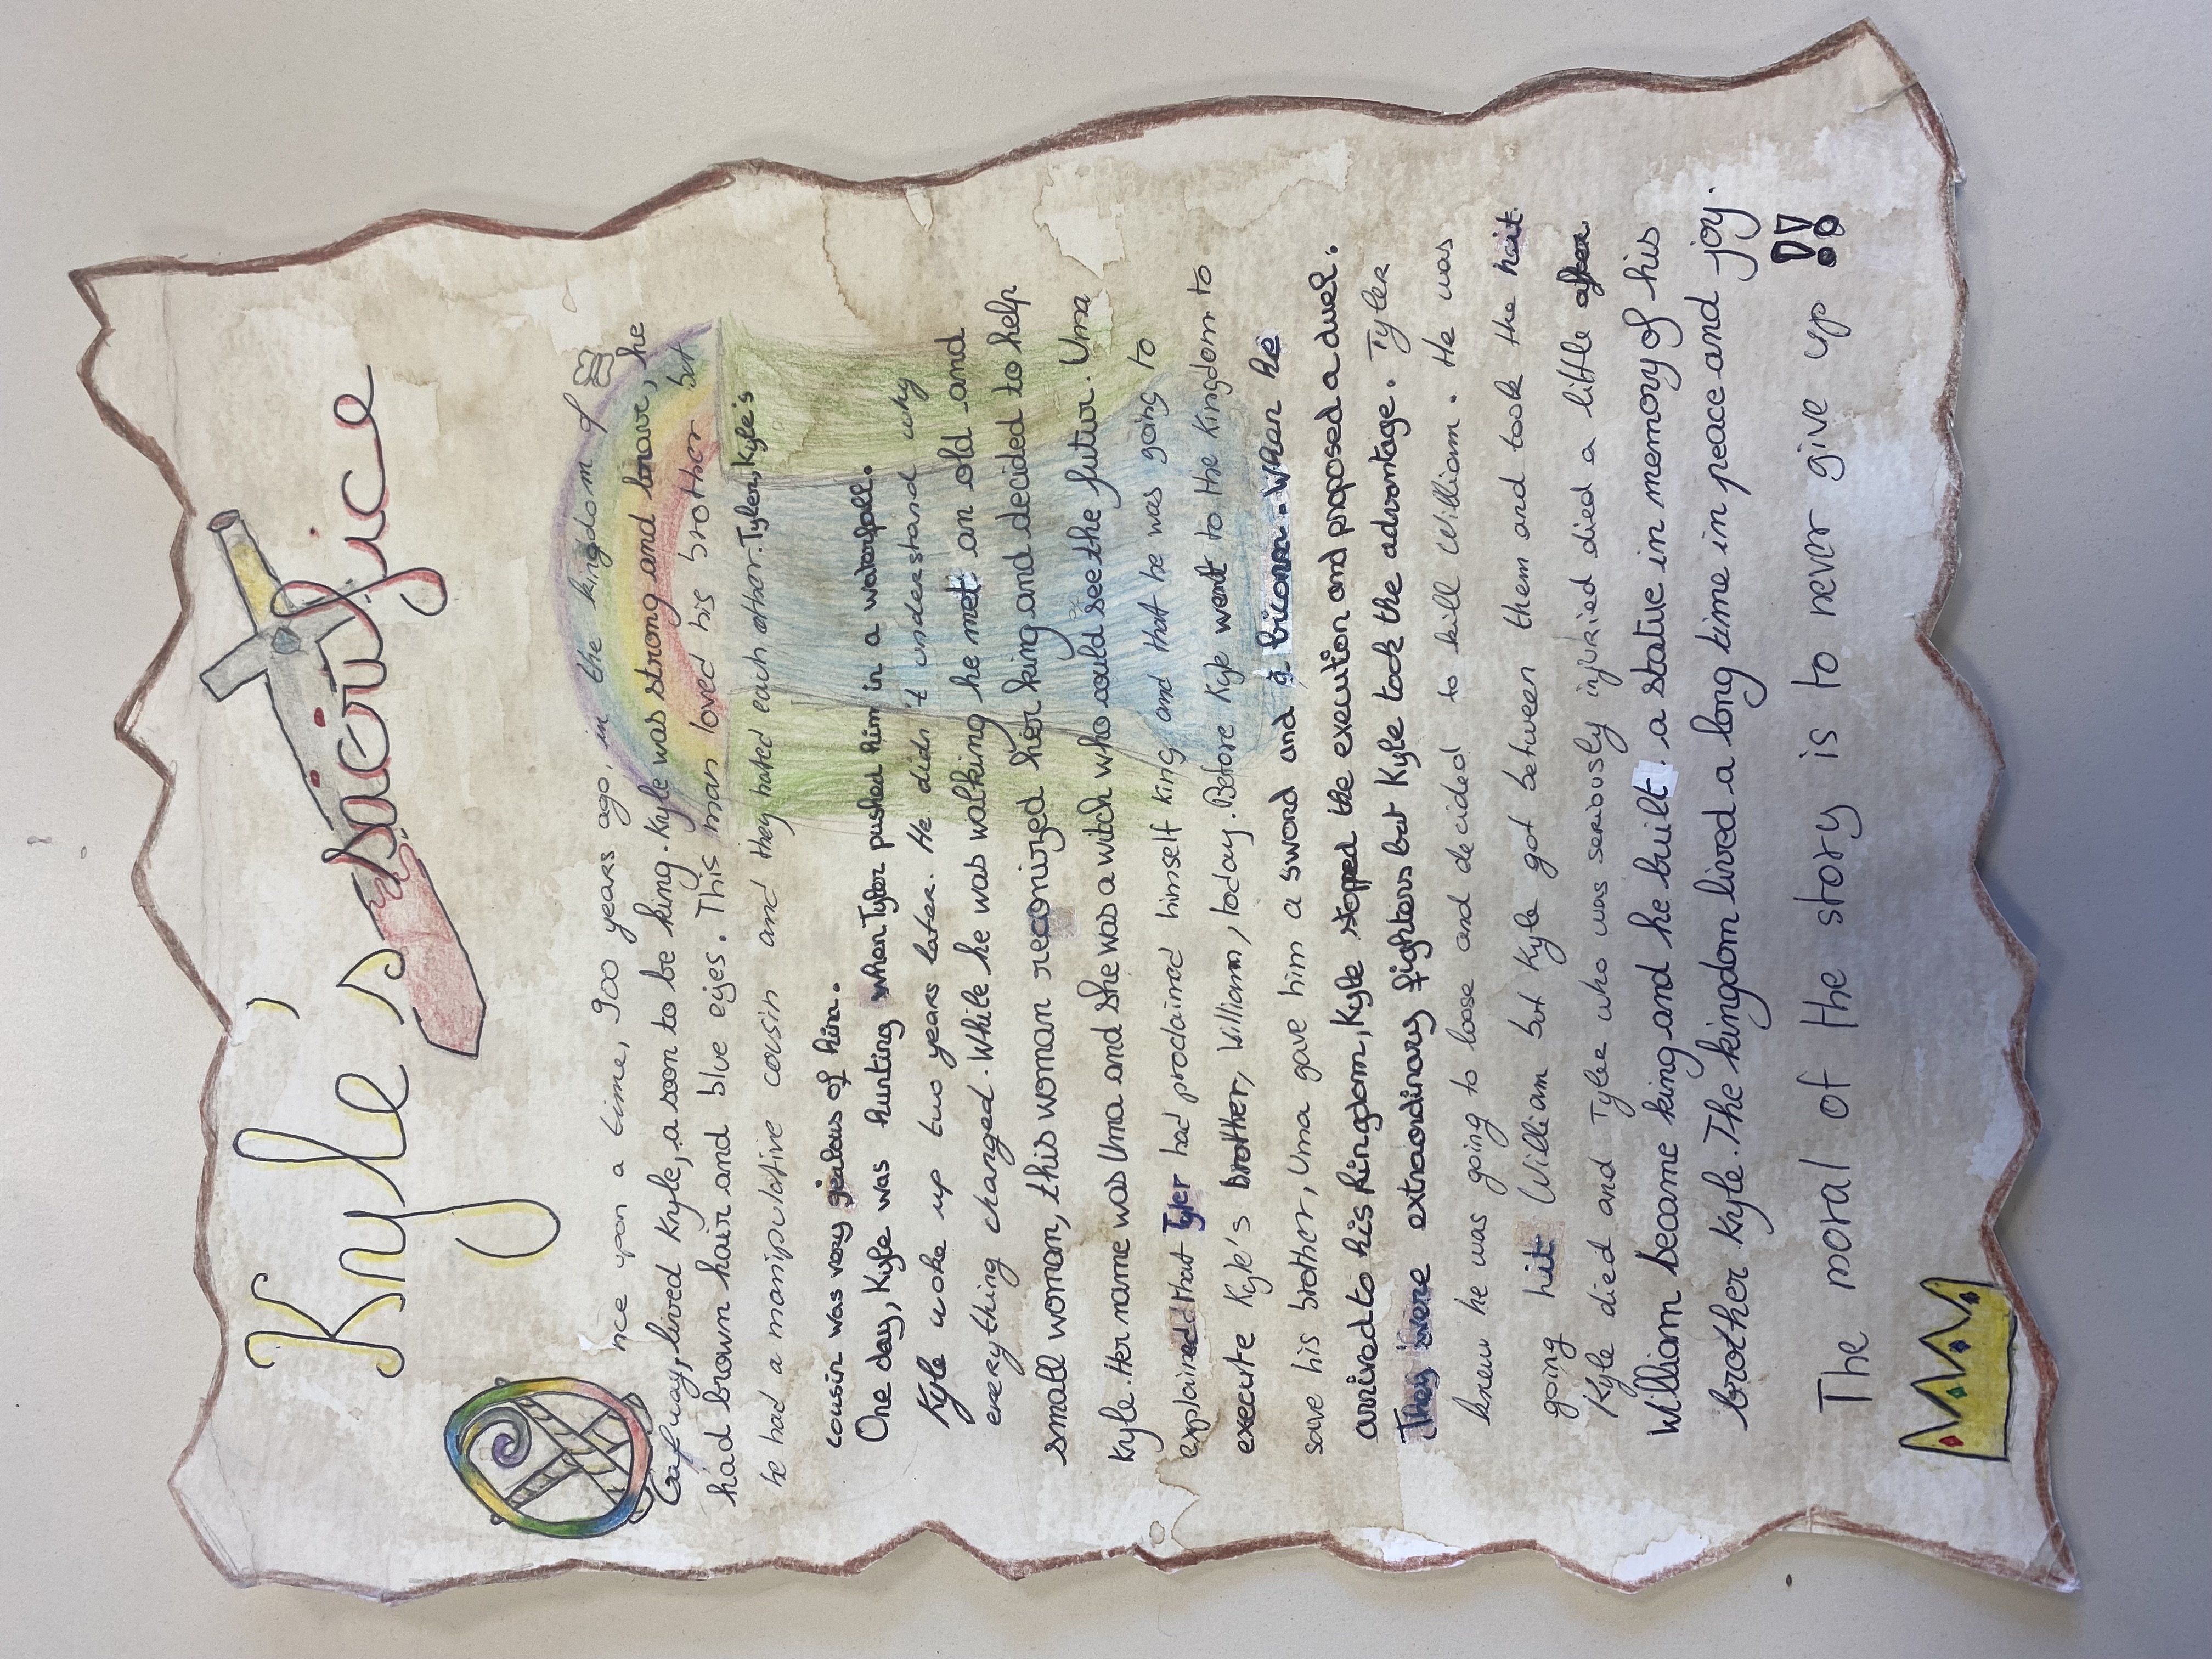 Kyle's sacrifice
Once upon a time, 900 years ago, in the kingdom of
Galway, lived Kyle, a soon to be king. Kyle was strong and brave, he
had brown hair and blue eyes. This man loved his brother but
he had a manipulative cousin and they hated each other. Tyler, Kyle's
cousin was very jealous of him.
One day, Kyle was hunting when Tyler pushed him in a waterfall.
Kyle woke up two years later. He didn't understand why
everything changed. While he was walking he met an old and
small woman, this woman reconized her king and decided to help
Kyle. Her name was Uma and she was a witch who could see the futur. Uma
explained that Tyler had proclaimed himself king and that he was going to
execute Kyle's brother, William, today. Before Kyle went to the Kingdom to
save his brother, Uma gave him a sword and a bicorn. When he
arrived to his Kingdom, Kyle stopped the execution and proposed a duel.
They were extraordinary fighters but Kyle took the advantage. Tyler
knew he was going to loose and decided to kill William. He was
going hit William but Kyle got between them and took the hit.
Kyle died and Tyler who was seriously injuried died a little after
William became king and he built a statue in memory of his
brother Kyle. The kingdom lived a long time in peace and joy.
The moral of the story is to never give up !!